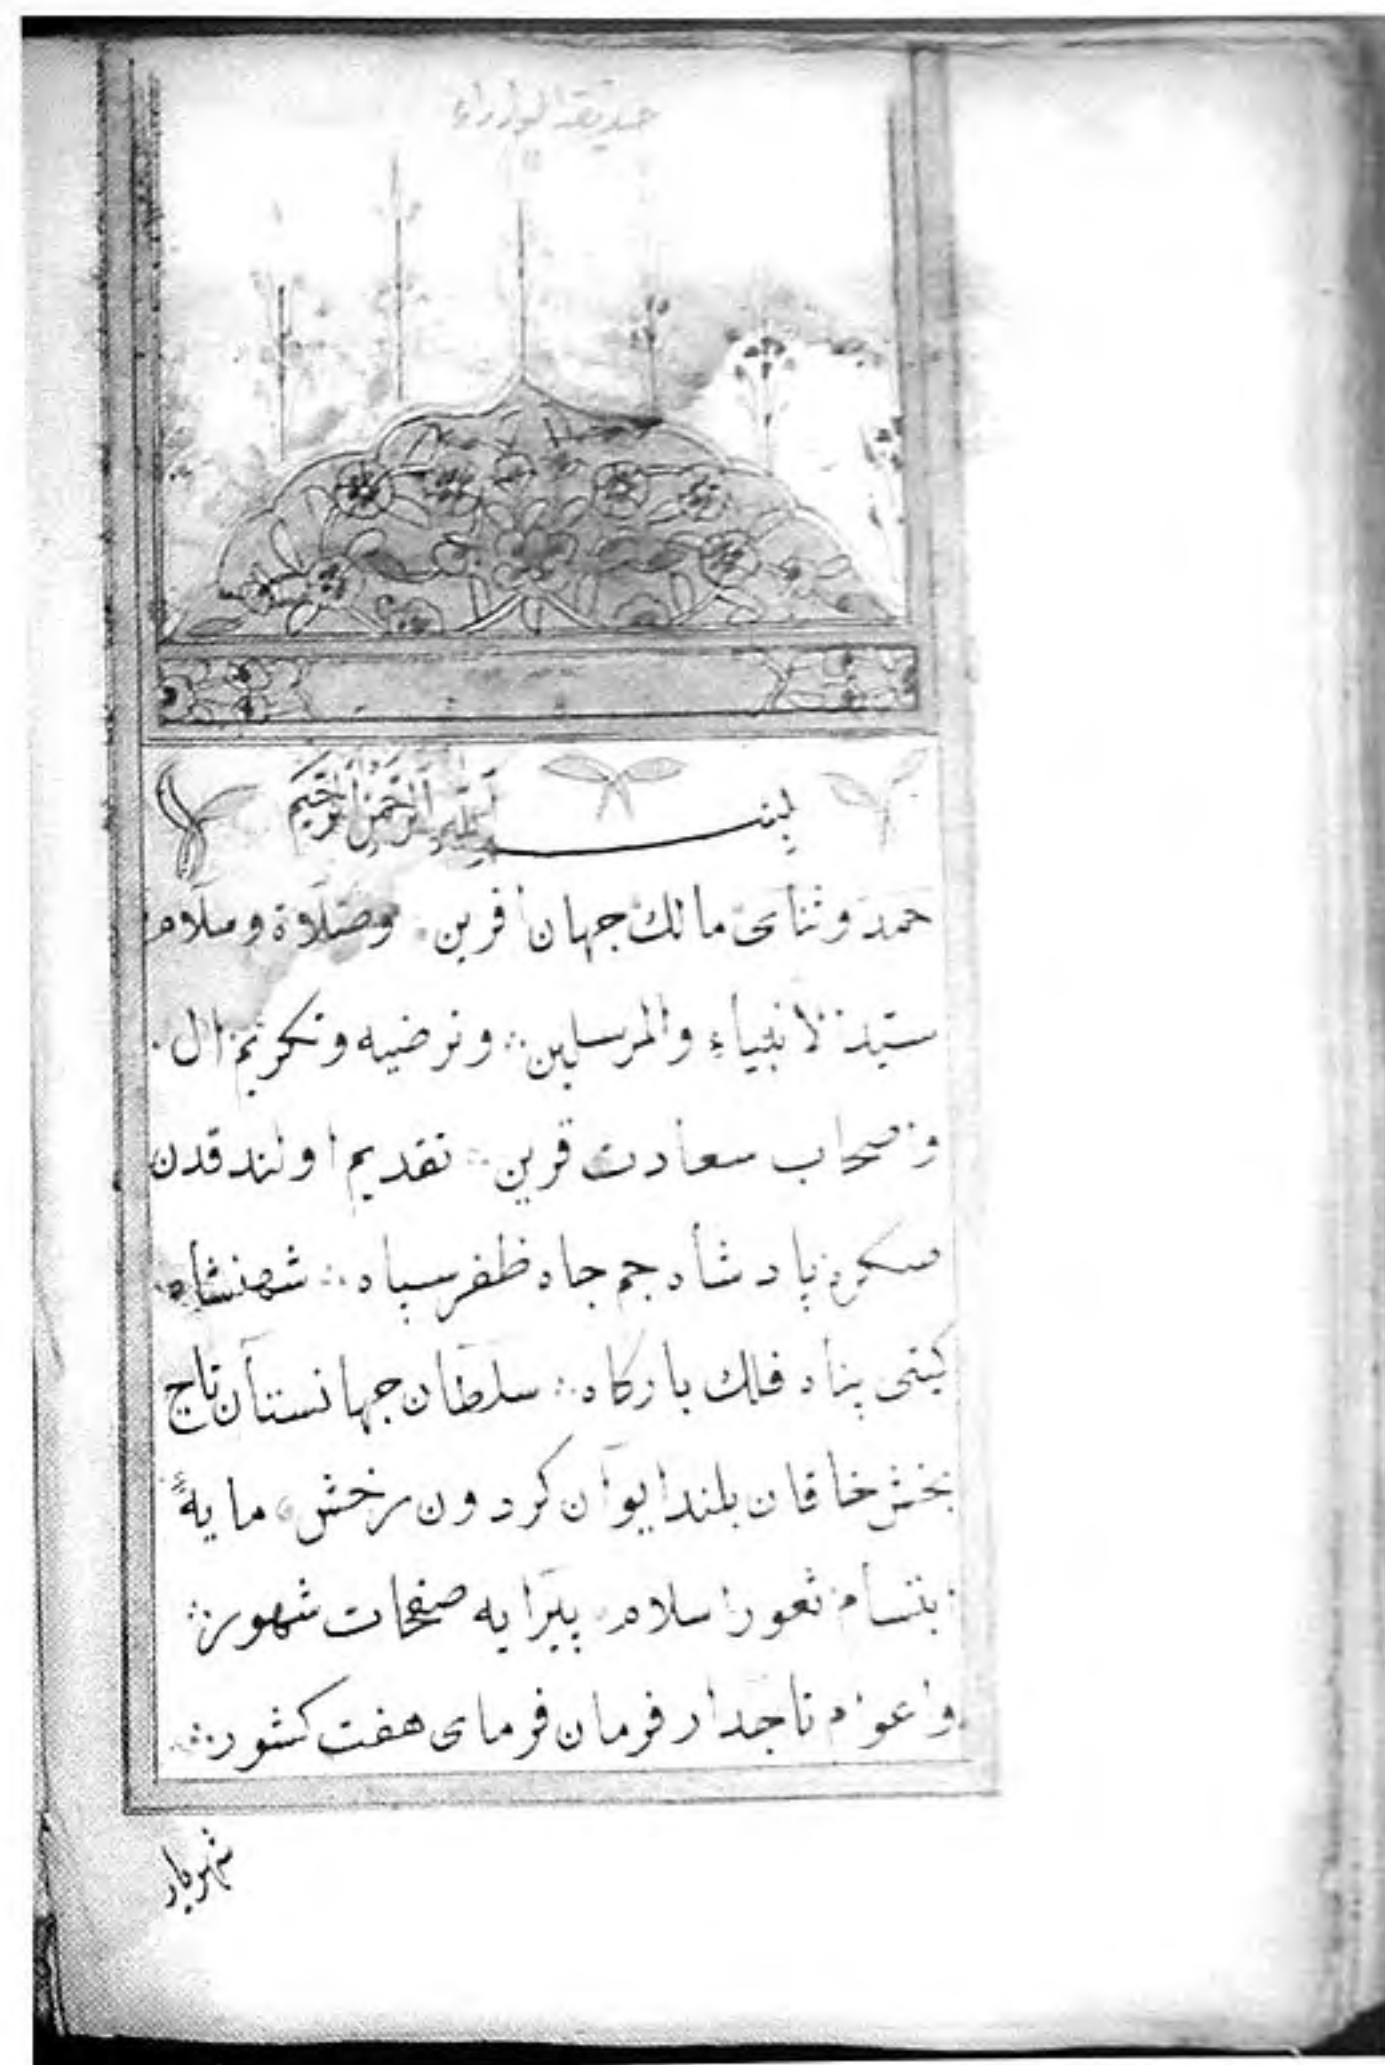 حديقة الوزراء
بسم الله الرحمن الرحيم
حمد وثنای مالك جهان آفرين وصلاة وسلام
سيد الانبياء والمرسلين ∴ وترضيه وتكريم ال
واصحاب سعادت قرين ∴ تقديم اولندقدن
صكره پادشاه جم جاه ظفر سپاه ∴ شهنشاه
كيتى پناه فلك باركاه ∴ سلطان جهانستان تاج
بخش خاقان بلند ايوان كردون رخش مايهٔ
ابتسام ثغور اسلام پيرايه صفحات شهور ∴
واعوام تاجدار فرمان فرماى هفت كشور ∴
شهريار